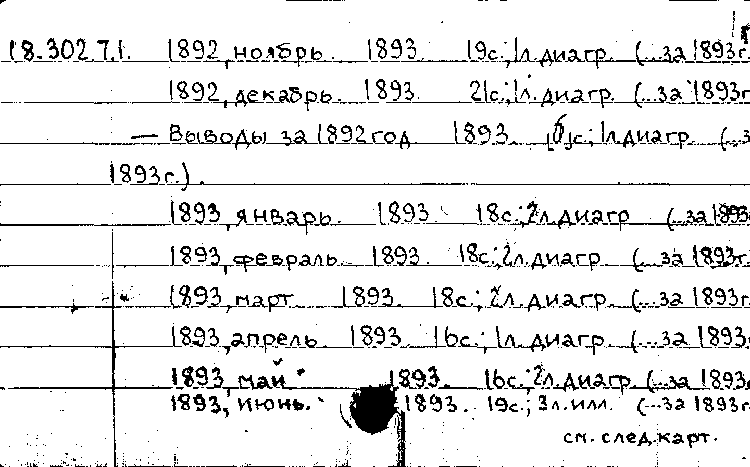 18.302.7.1. 1892, ноябрь. 1893. 19с.; 1л.диагр. (...за 1893г.
1892, декабрь. 1893. 21с.; 1л.диагр. (...за 1893г.
— Выводы за 1892 год 1893. [6]с.; 1л.диагр. (...з
1893г.).
1893, январь. 1893. 18с.; 2л.диагр (...за 1893
1893, февраль. 1893. 18с.; 2л.диагр. (...за 1893г.
1893, март 1893. 18с.; 2л.диагр. (...за 1893г
1893, апрель. 1893. 16с.; 1л.диагр. (...за 1893.
1893, май. 1893. 16с.; 2л.диагр. (...за 1893.
1893, июнь. 1893. 19с.; 3л.илл. (...за 1893г
см. след. карт.